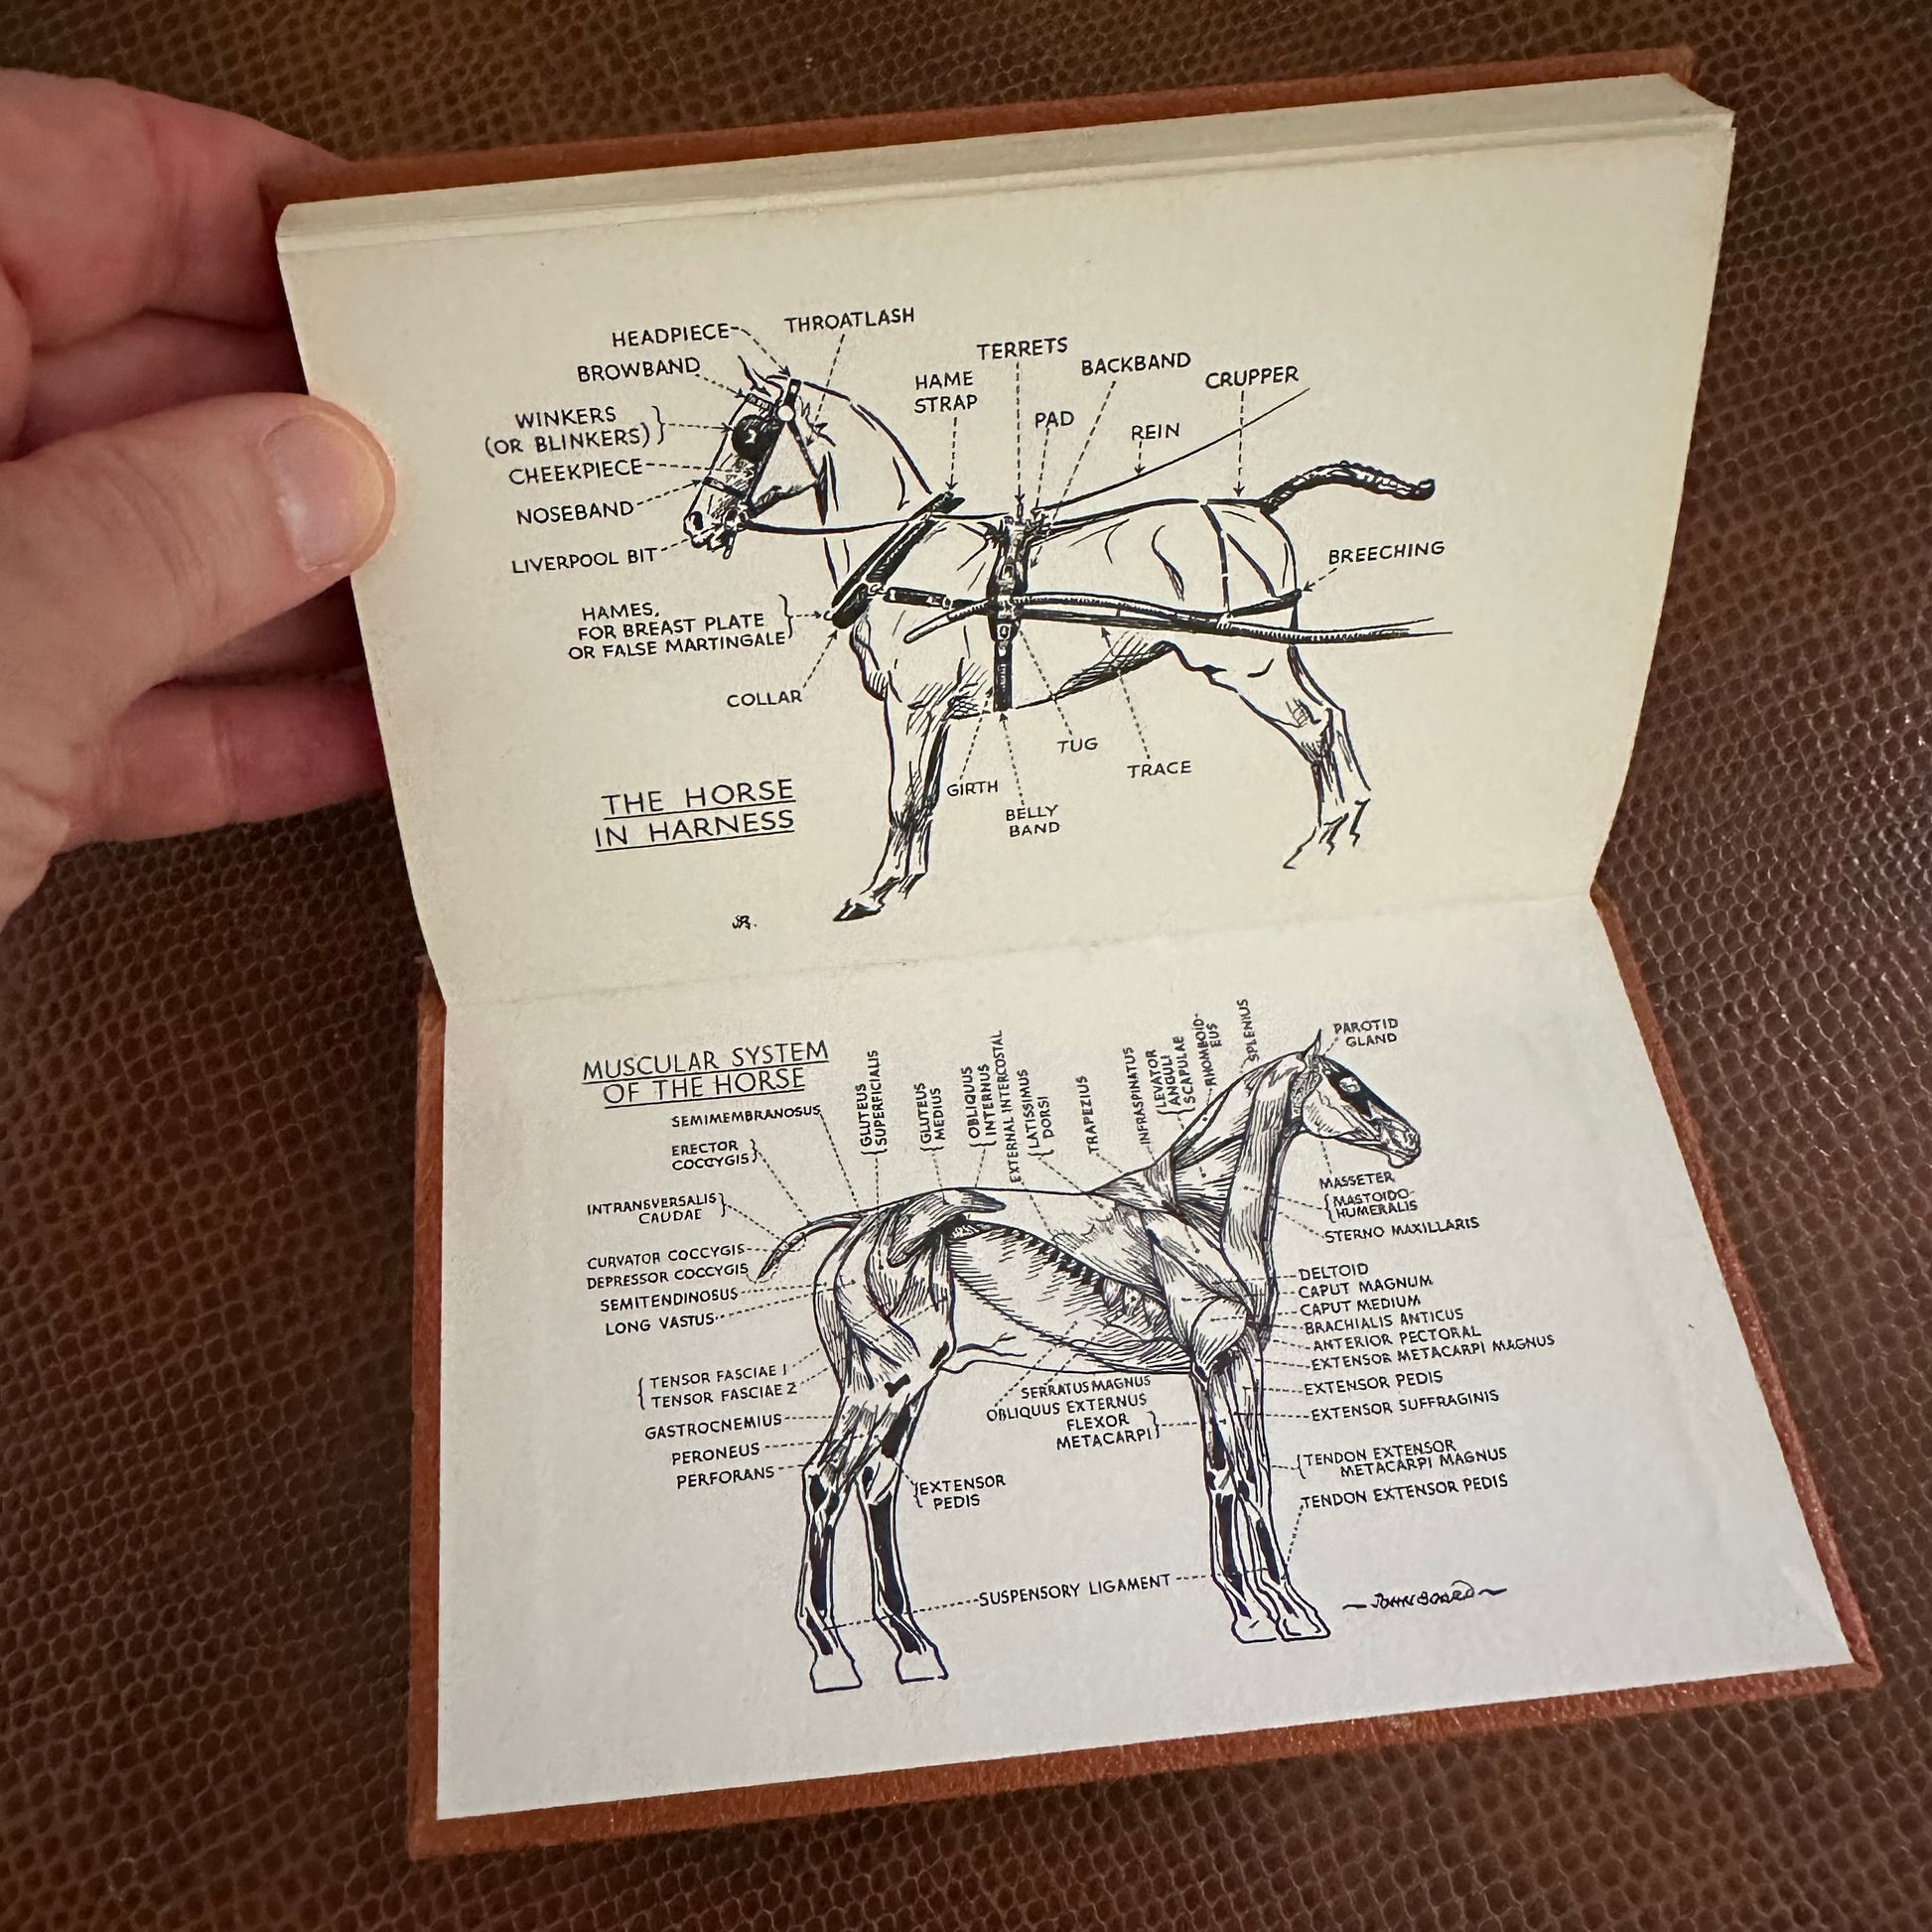 HEADPIECE
THROATLASH
BROWBAND
WINKERS
(OR BLINKERS)
CHEEKPIECE
NOSEBAND
LIVERPOOL BIT
HAMES,
FOR BREAST PLATE
OR FALSE MARTINGALE
COLLAR
HAME
STRAP
TERRETS
PAD
BACKBAND
REIN
CRUPPER
BREECHING
TUG
TRACE
GIRTH
BELLY
BAND
THE HORSE
IN HARNESS
MUSCULAR SYSTEM
OF THE HORSE
SEMIMEMBRANOSUS
ERECTOR
COCCYGIS
INTRANSVERSALIS
CAUDAE
CURVATOR COCCYGIS
DEPRESSOR COCCYGIS
SEMITENDINOSUS
LONG VASTUS
TENSOR FASCIAE 1
TENSOR FASCIAE 2
GASTROCNEMIUS
PERONEUS
PERFORANS
GLUTEUS
SUPERFICIALIS
GLUTEUS
MEDIUS
OBLIQUUS
INTERNUS
EXTERNAL INTERCOSTAL
LATISSIMUS
DORSI
TRAPEZIUS
INFRASPINATUS
LEVATOR
ANGULI
SCAPULAE
RHOMBOID-
EUS
SPLENIUS
PAROTID
GLAND
MASSETER
MASTOIDO-
HUMERALIS
STERNO MAXILLARIS
DELTOID
CAPUT MAGNUM
CAPUT MEDIUM
BRACHIALIS ANTICUS
ANTERIOR PECTORAL
EXTENSOR METACARPI MAGNUS
EXTENSOR PEDIS
EXTENSOR SUFFRAGINIS
TENDON EXTENSOR
METACARPI MAGNUS
TENDON EXTENSOR PEDIS
SERRATUS MAGNUS
OBLIQUUS EXTERNUS
FLEXOR
METACARPI
EXTENSOR
PEDIS
SUSPENSORY LIGAMENT
JOHN BOARD